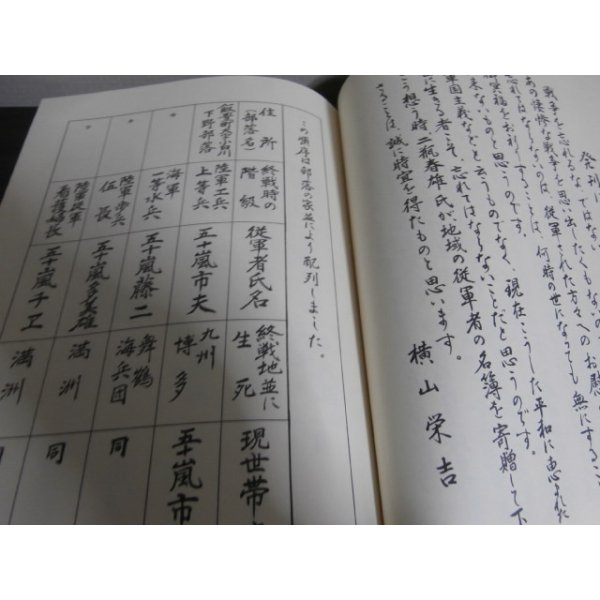 発刊に
戦争を忘れるな
あの悽惨な戦争を思い出したくもないの
忘れてはなりません。従軍された方々への
御冥福をお祈りすることは、何時の世になっても無にするこ
来ないものと思うのです。
軍国主義などと云うものでなく、現在こうした平和に恵まれた
に生きる者こそ、忘れてはならないことだと思うのです。
こう想う時二瓶春雄氏が地域の従軍者の名簿を寄贈して下
さることは、誠に時宜を得たものと思います。
横山栄吉
この順序は部落の家並により配列しました。
住所(部落名)
終戦時の階級
従軍者氏名
終戦地並に生死
現世帯
下野部落
陸軍工兵上等兵
五十嵐市夫
九州博多
五十嵐市
〃
海軍一等水兵
五十嵐藤二
舞鶴海兵団
同
〃
陸軍歩兵伍長
満洲
同
〃
五十嵐千工
満洲
同